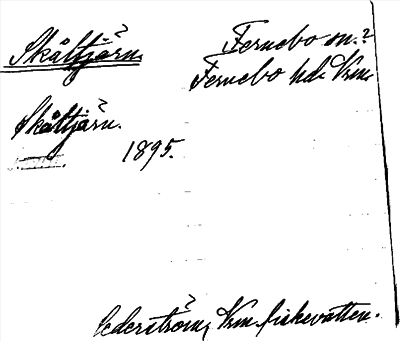 Skåltjärn. Fernebo sn.?
Fernebo hd. Vrm.
Skåltjärn.
1895.
Cederström, Vrm. fiskevatten.